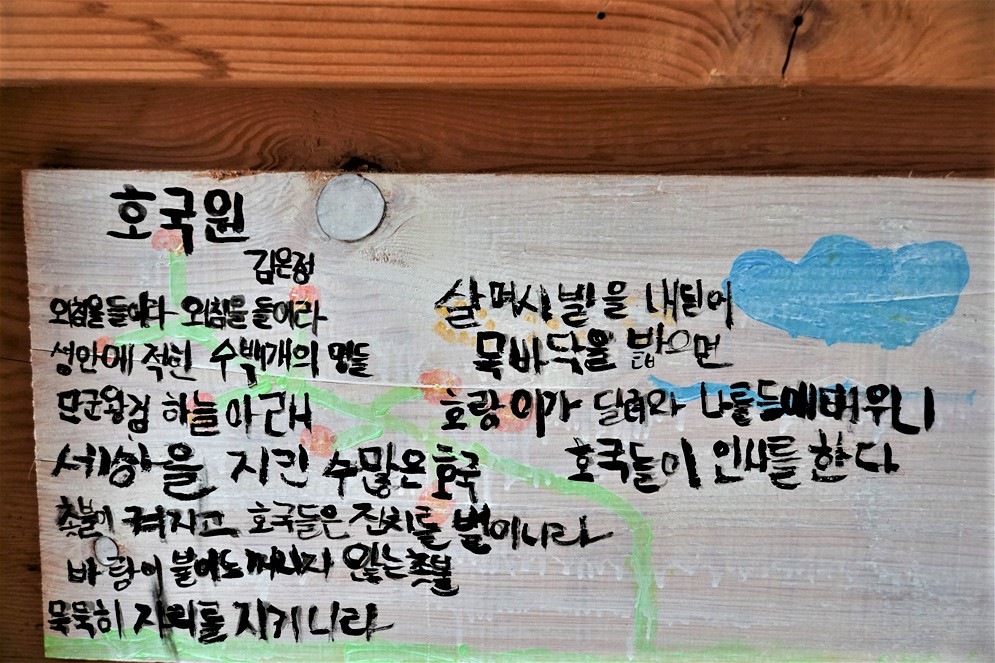 호국원
김은정
외침을 들어라 외침을 들어라
성안에 적힌 수백개의 명들
단군왕검 하늘 아래서
세상을 지킨 수많은 호국
촛불이 켜지고 호국들은 잔치를 벌이니라
바람이 불어도 꺼지지 않는 촛불
묵묵히 자리를 지키니라
살며시 발을 내딛어
묵바닥을 밟으면
호랑이가 달려와 나를 등에 태우니
호국들이 인사를 한다